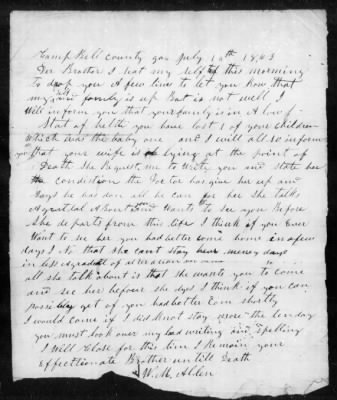 Camp Bell County gas July 10th 1863
Der Brother I seat my self this morning
to drop you A few lines to let you know that
my self and family is up But is not well I
Will inform you that your family is in A low
Stat of helth you have lost 1 of your children
Which was the baby one and I will all so inform
you that your wife is lying at the point of
Death She Request me to Write you and state her
condistion the Doctor has give her up and
Says he has don all he can for her She talks
A grat eal About and Wants to see you Before
She departs from this life I think if you Ever
Want to see her you had better come home in a few
days I No that She cant stay meney days
in less A grat eal of alteration
all she talk about is that she wants you to come
and see her before she dyes I think if you can
possibley get of you had better Com shortly
I would come if I did not stay more the one day
you must look over my bad writing and Spelling
I Will Close for this time I Remain your
Effecttionate Brother untill Death
W. M. Alden